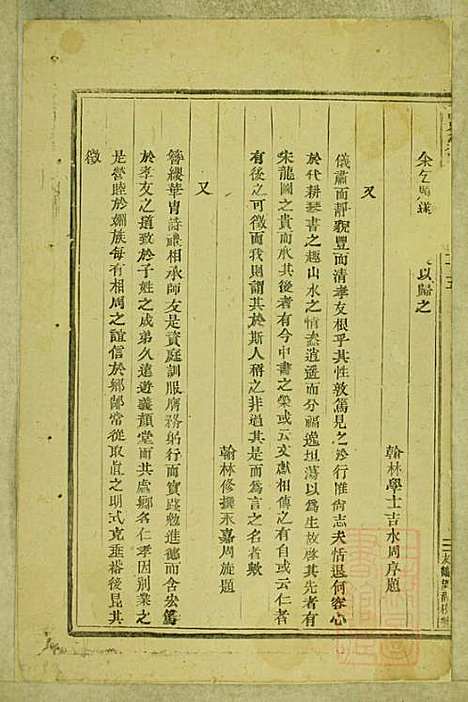 以歸之
翰林學士吉水周序題
又
儀肅而靜貌豐而清孝友根乎其性敦篤見之於行惟尚志夫恬退何容心
於代耕琴書之趣山水之情盍逍遥而分福逸坦蕩以為生故啓其先者有
宋龍圖之貴而承其後者有今中書之榮或云文獻相傳之有自或云仁者
有後之可徵而我則謂其於斯人稱之非過其是而為言之名者歟
翰林修撰永嘉周旋題
又
簪纓華胄詩禮相承師友是資庭訓服膺務躬行而實踐勉進德而含宏篤
於孝友之道致於子姓之成弟久遠遊養顏堂而共處鄉名仁孝因別業之
是營睦於婣族每有相周之誼信於鄉鄰常從取眞之明式克垂裕後昆其
徵